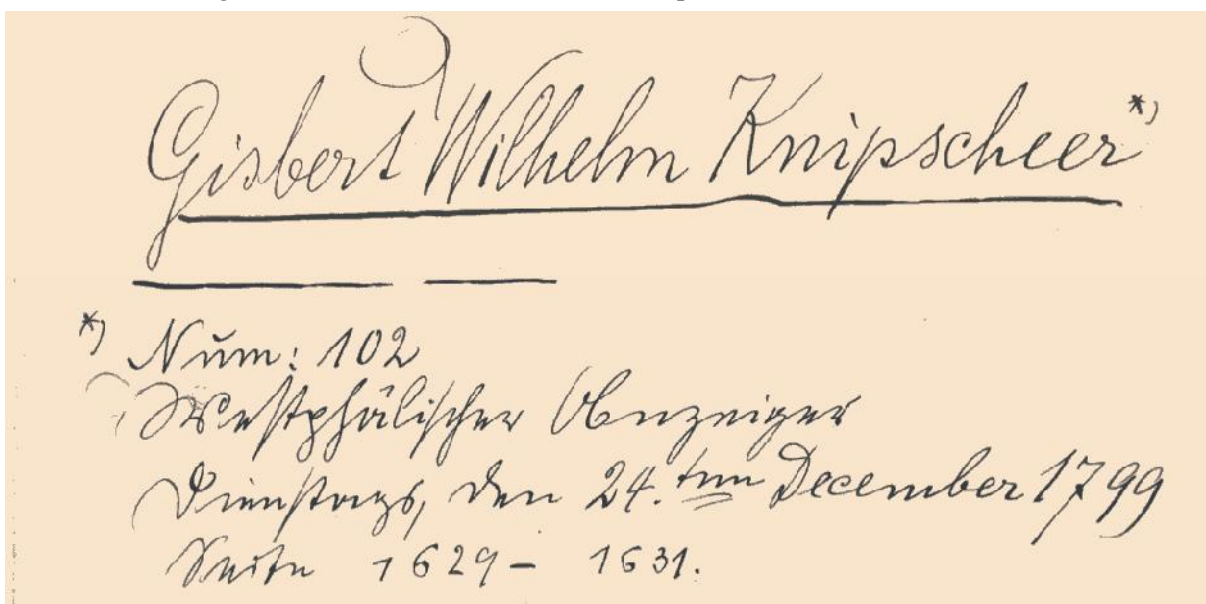 Gisbert Wilhelm Knipscheer *)
*) Num: 102
Westphälischer Anzeiger
Dienstags, den 24.ten December 1799
Seite 1629 – 1631.